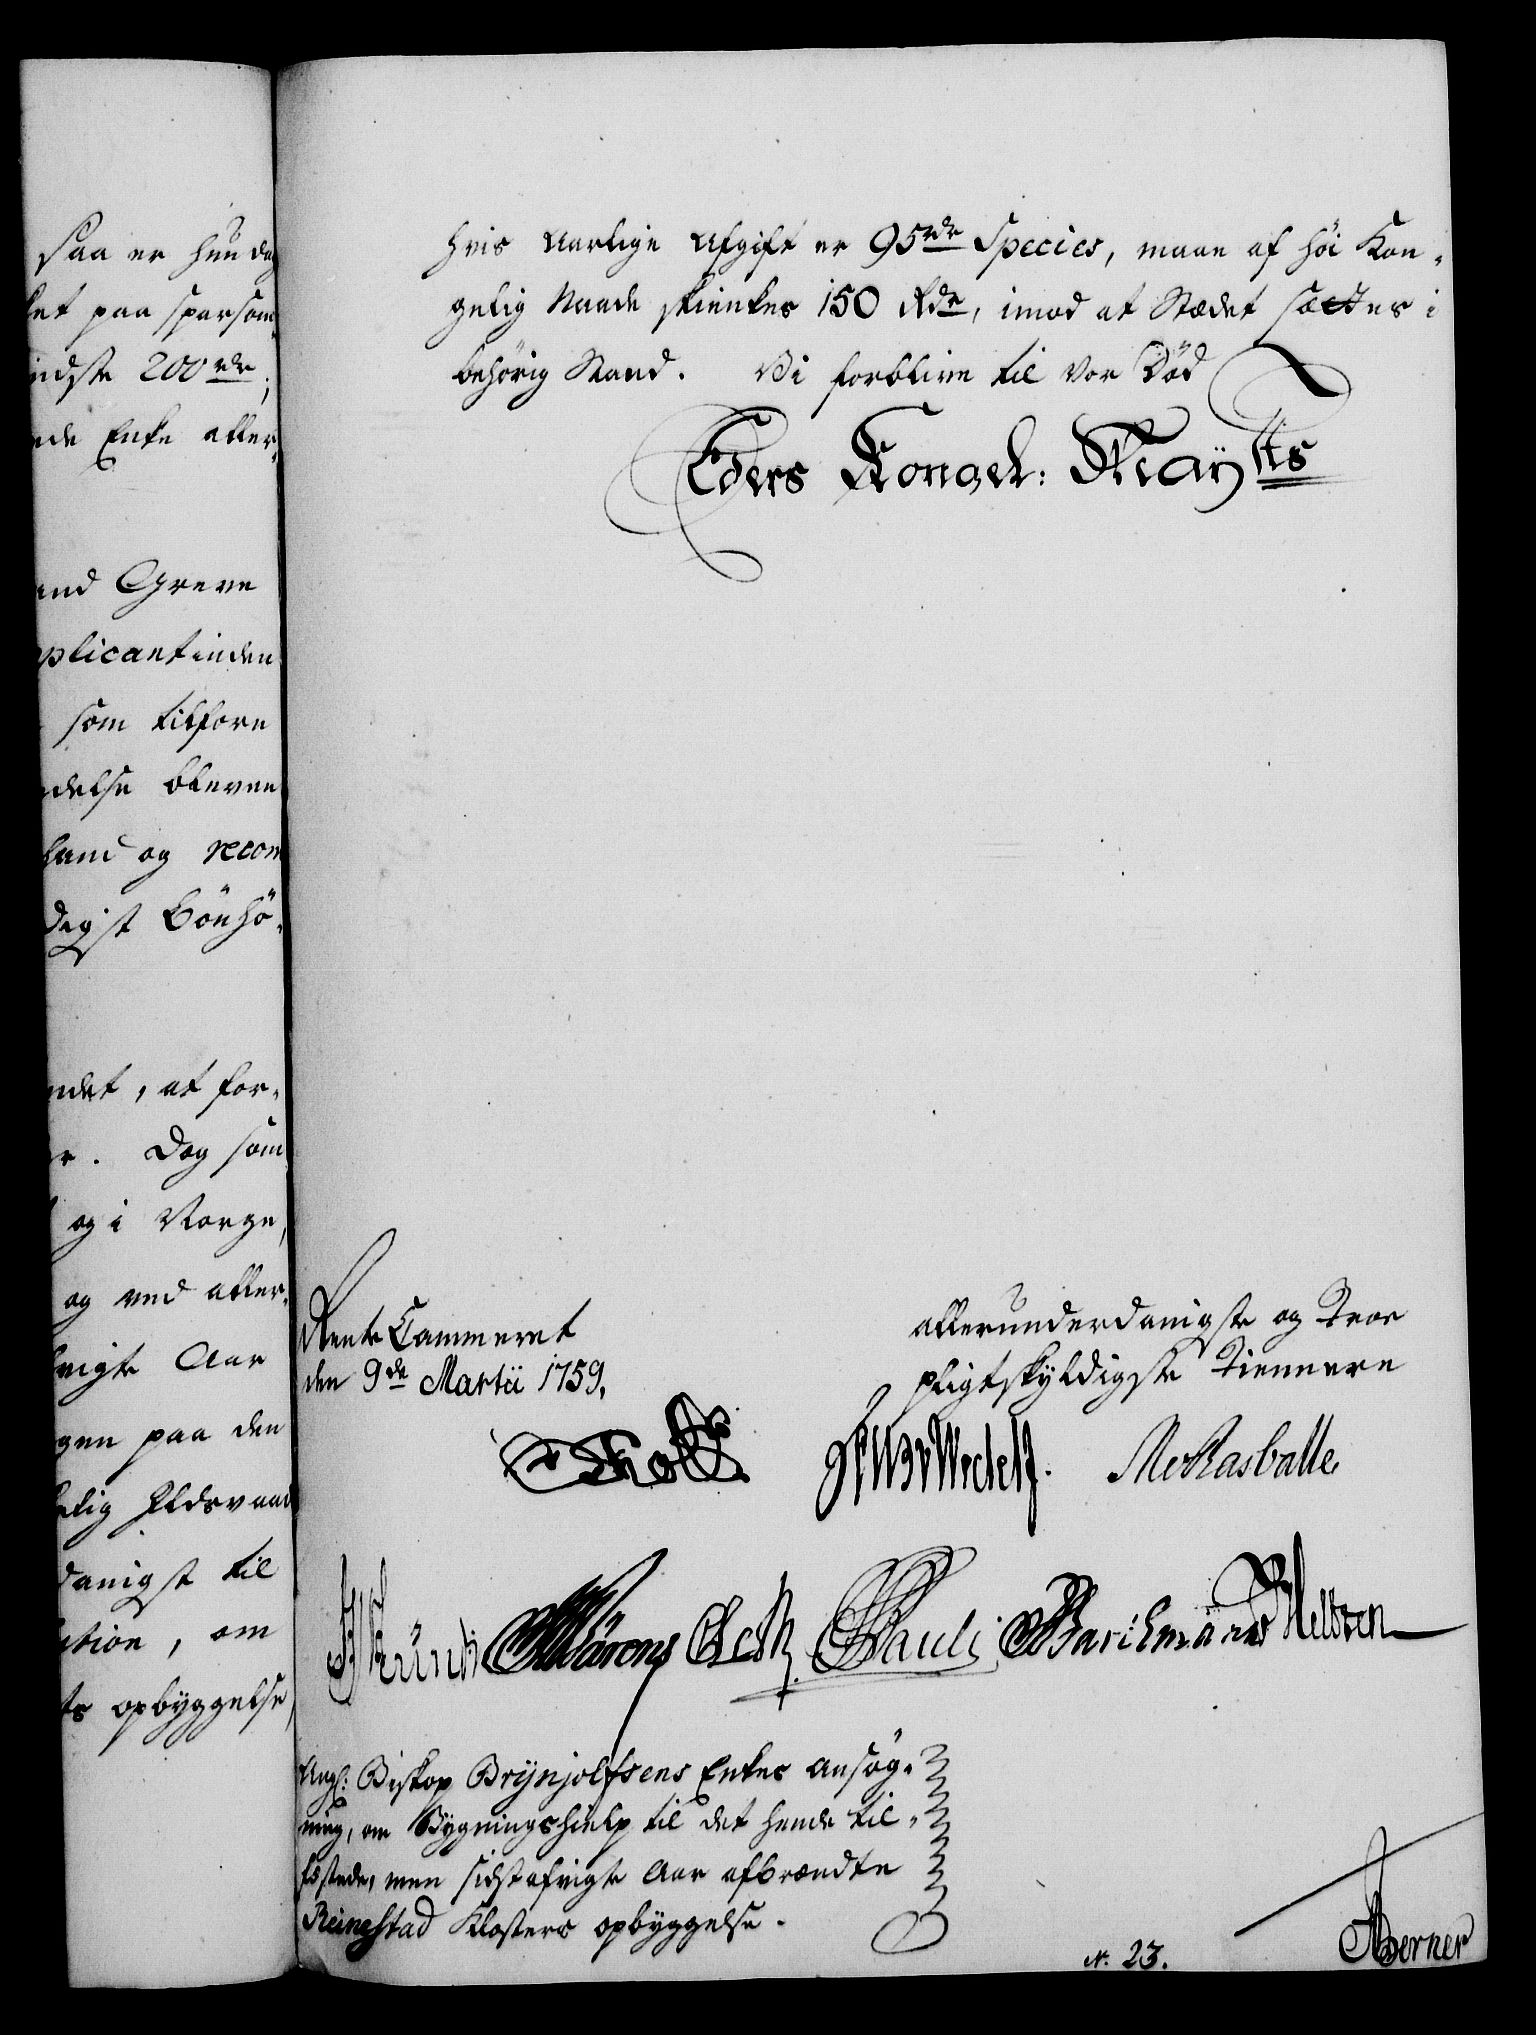 saa er hun da
let paa sparsom-
indste 200 rdr;
nde Enke aller-
and Greve
pplicantinden
som tilforn
delse bleven
ham og recom
digst Bönhö-
ndet, at for-
r. Dog som
og i Norge,
og ved aller-
frigte Aar
gen paa den
kelig Ildsvaad
danigst til
ution, om
ts opbyggelse,
hvis aarlige Afgift er 95 rdr Species, maae af höi Kon-
gelig Naade skienkes 150 Rdr, imod at Stædet sættes i
behörig Stand. Vi forblive til vor Död
Eders Kongel: Mayts
Rente Cammeret
den 9de Martii 1759.
allerunderdanigste og Troe
pligtskyldigste Tiennere
Holst
Wedell. Rasballe
Wärens Beck Pauli Barchmann Nelssen
Ang: Biskop Brynjolfsens Enkes ansög-
ning, om Bygningshielp til det hende til-
fæstede, men sidstafvigte Aar afbrændte
Reinestad Klosters opbyggelse.
N. 23.
Berner